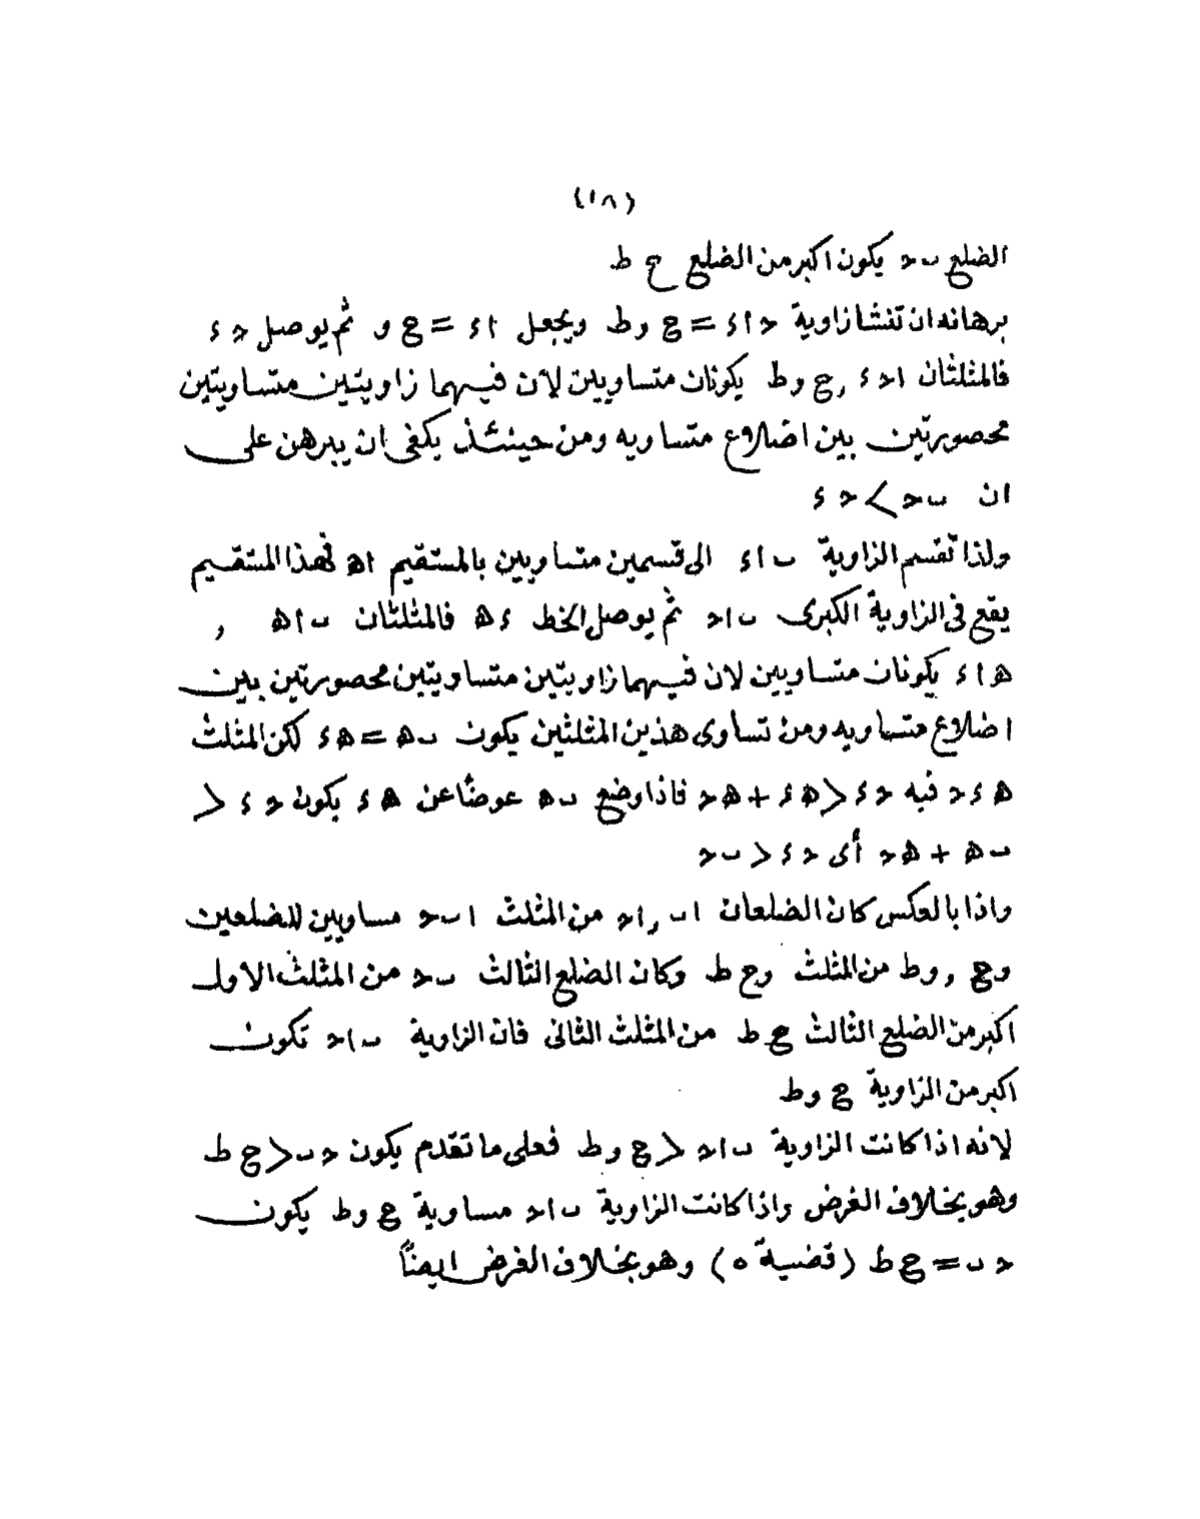 (١٨)
الضلع ٮ حـ يكون اكبر من الضلع ح ط
برهانه ان تنشا زاوية حـ ا ء = ح و ط ويجعل ا ء = ح و ثم يوصل حـ ء
فالمثلثان ا حـ ء , ح و ط يكونان متساويين لان فيهما زاويتين متساويتين
محصورتين بين اضلاع متساويه ومن حينئذ يكفى ان يبرهن على
ان ٮ حـ > حـ ء
ولذا تقسم الزاوية ٮ ا ء الى قسمين متساويين بالمستقيم ا ه فهذا المستقيم
يقع فى الزاوية الكبرى ٮ ا حـ ثم يوصل الخط ء ه فالمثلثان ٮ ا ه ,
ه ا ء يكونان متساويين لان فيهما زاويتين متساويتين محصورتين بين
اضلاع متساويه ومن تساوى هذين المثلثين يكون ٮ ه = ه ء لكن المثلث
ه ء حـ فيه حـ ء < ه ء + ه حـ فاذا وضع ٮ ه عوضًا عن ه ء يكون حـ ء <
ٮ ه + ه حـ أى حـ ء < ٮ حـ
واذا بالعكس كان الضلعان ا ٮ , ا حـ من المثلث ا ٮ حـ مساويين للضلعين
و ح , و ط من المثلث و ح ط وكان الضلع الثالث ٮ حـ من المثلث الاول
اكبر من الضلع الثالث ح ط من المثلث الثانى فان الزاوية ٮ ا حـ تكون
اكبر من الزاوية ح و ط
لانه اذا كانت الزاوية ٮ ا حـ < ح و ط فعلى ما تقدم يكون حـ ٮ < ح ط
وهو بخلاف الفرض واذا كانت الزاوية ٮ ا حـ مساوية ح و ط يكون
حـ ٮ = ح ط (قضية ٥) وهو بخلاف الفرض ايضًا